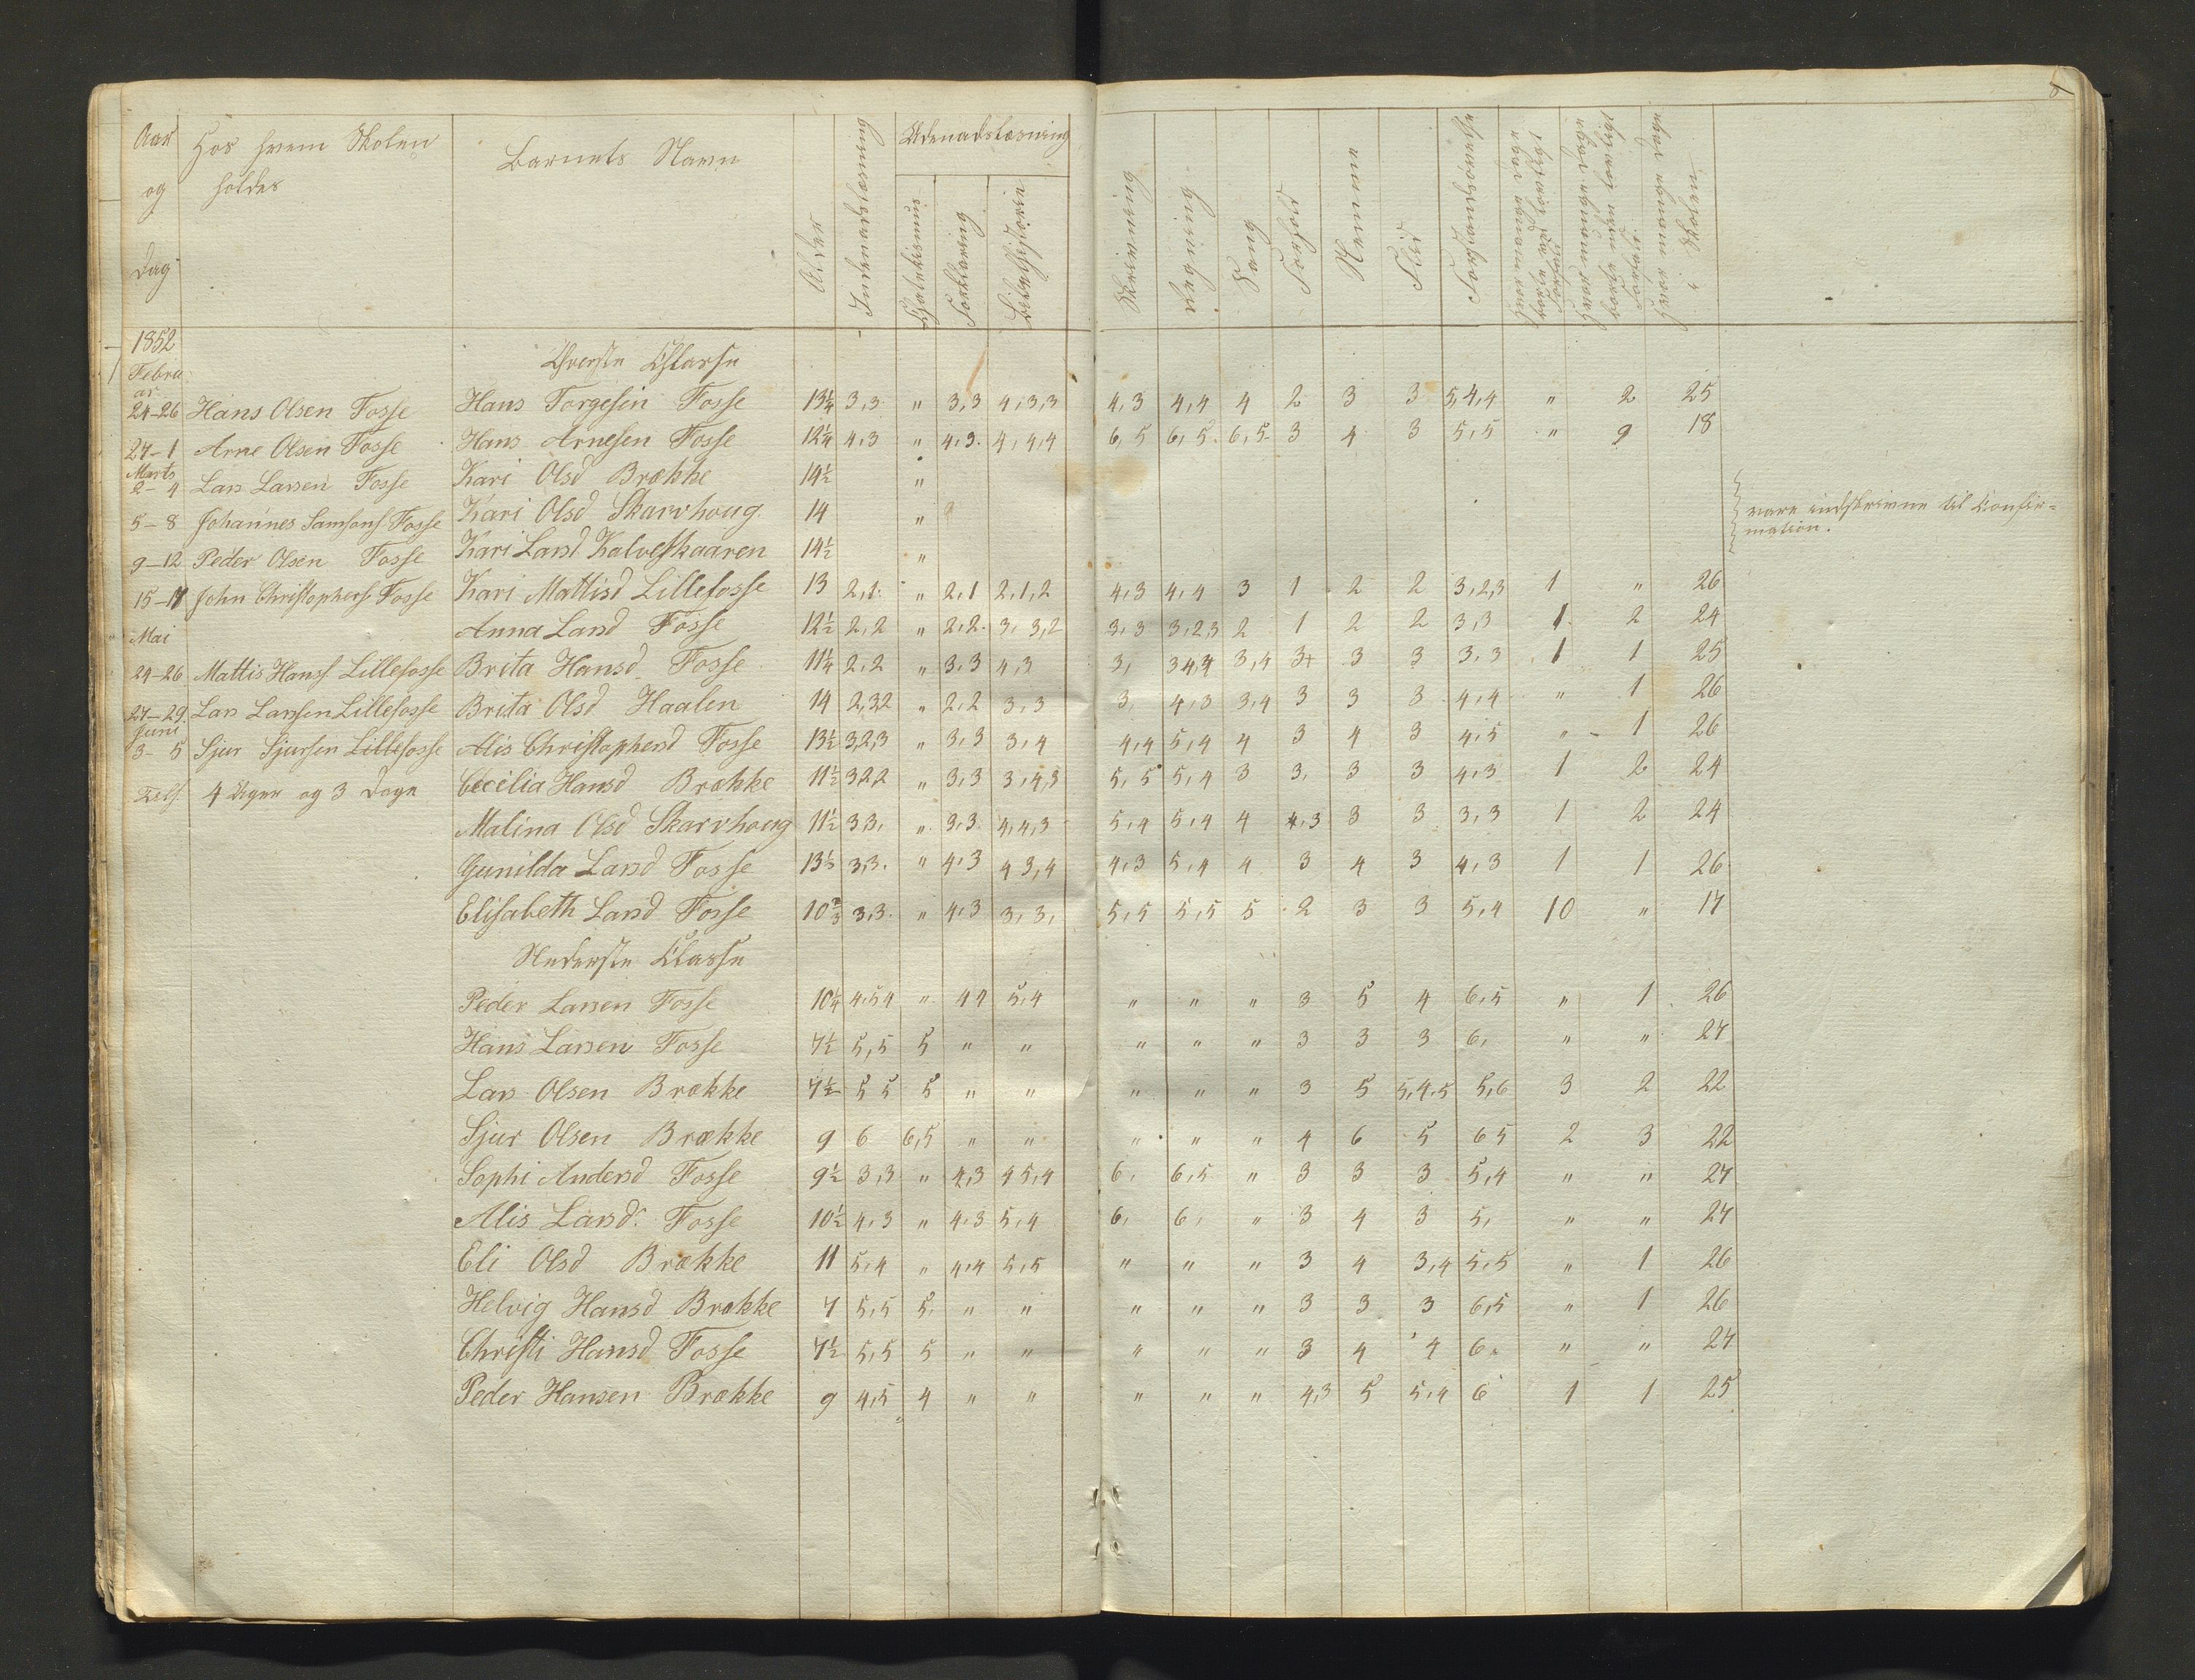 8
Aar og Dag
Hos hvem Skolen holdes
Barnets Navn
Alder
Indenadslæsning
Udenadslæsning
Chatekismus
Forklaring
Bibelhistorie
Skrivning
Regning
Sang
Forhold
Nemme
Flid
Forstandsøvelse
hvor mange dage borte ved lovligt Forfald
hvor mange dage borte uden lovligt Forfald
hvor mange dage i Skolen
1852
Øverste Classe
Februar
24-26 Hans Olsen Fosse Hans Torgesen Fosse 13 1/4 3,3 " 3,3 4,3,3 4,3 4,4 4 2 3 3 5,4,4 " 2 25
27-1 Arne Olsen Fosse Hans Arnesen Fosse 12 1/4 4,3 " 4,3. 4,4,4 6,5 6,5. 6,5. 3 4 3 5,5 " 9 18
Marts
2-4 Lars Larsen Fosse Kari Olsd Brække 14 1/2 "
5-8 Johannes Samsons Fosse Kari Olsd Skarvhoug 14 "
vare indskrevne til Confirmation.
9-12 Peder Olsen Fosse Kari Larsd Kalveskaaren 14 1/2 "
15-17 John Christophers Fosse Kari Mattisd Lillefosse 13 2,1. " 2,1 2,1,2 4,3 4,4 3 1 2 2 3,2,3 1 " 26
Mai Anna Larsd Fosse 12 1/2 2,2 " 2,2. 3,3,2 3,3 3,2,3 2 1 2 2 3,3 1. 2 24
24-26 Mattis Hans Lillefosse Brita Hansd Fosse 11 1/4 2,2 " 3,3 4,3 3, 3 4,4 3,4 3+ 3 3 3,3 1 1 25
27-29. Lars Larssen Lillefosse Brita Olsd Haalen 14 2,32 " 2,2 3,3 3, 4,3 3,4 3 3 3 4,4 " 1 26
Juni
3-5 Sjur Sjursen Lillefosse Alis Christophersd Fosse 13 1/2 3,2,3 " 3,3 3,4 4,4 5,4 4 3 4 3 4,5 " 1 26
4 Uger og 3 Dage Cecelia Hansd Brække 11 1/2 322 " 3,3 3,4,3 5,5 5,4 3 3, 3 3 4,3 1 2 24
Malina Olsd Skarvhoug 11 1/2 3,3, " 3,3. 4,4,3 5,4 5,4 4 4,3 3 3 3,3 1 2 24
Gunilda Larsd Fosse 13 1/3 3,3. " 4,3 4 3,4 4,3 5,4 4 3 4 3 4,3 1 1 26
Elisabeth Larsd Fosse 10 2/3 3,3. " 4,3 3,3, 5,5 5,5 5 2 3 3 5,4 10 " 17
Nederste Classe
Peder Larsen Fosse 10 1/4 4,54 " 44 5,4 " " " 3 5 4 6,5 " 1 26
Hans Larsen Fosse 7 1/2 5,5 5 " " " " " 3 3 3 6, " " 27
Lars Olsen Brække 7 1/2 5 5 5 " " " " " 3 5 5,4,5 5,6 3 2 22
Sjur Olsen Brække 9 6 6,5 " " " " " 4 6 5 65 2 3 22
Sophi Andersd Fosse 9 1/2 3,3 " 4,3 4 5,4 6, 6,5 " 3 3 3 5,4 " " 27
Alis Larsd. Fosse 10 1/2 4,3 " 4,3 5,4 6, 6, " 3 4 3 5, " " 27
Eli Olsd Brække 11 5,4 " 4,4 5,5 " " " 3 4 3,4 5,5 " 1 26
Helvig Hansd Brække 7 5,5 5. " " " " " 3 3 3 6,5 " 1 26
Christi Hansd Fosse 7 1/2 5,5 5 " " " " " 3 4 4 6. " " 27
Peder Hansen Brække 9 4,5 4 " " " " " 4,3 5 5,4 6 1 1 25